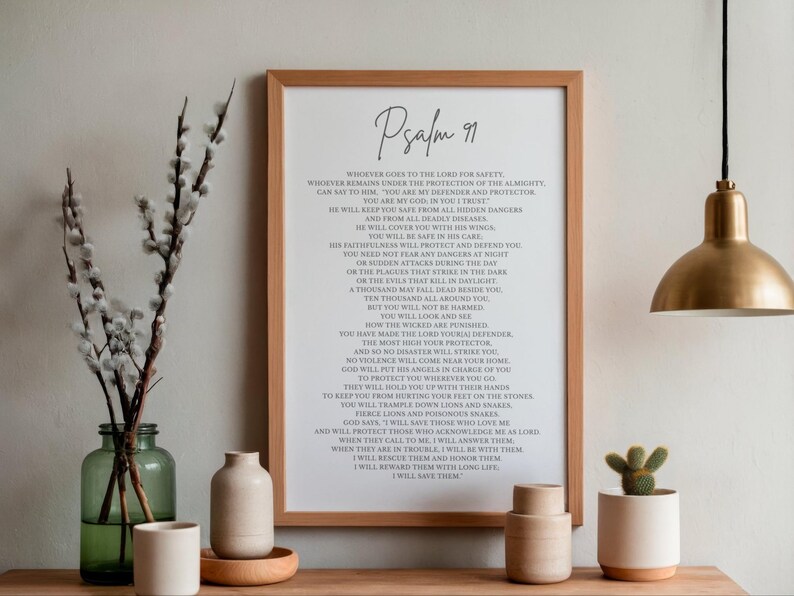 Psalm 91
WHOEVER GOES TO THE LORD FOR SAFETY,
WHOEVER REMAINS UNDER THE PROTECTION OF THE ALMIGHTY,
CAN SAY TO HIM, "YOU ARE MY DEFENDER AND PROTECTOR.
YOU ARE MY GOD; IN YOU I TRUST."
HE WILL KEEP YOU SAFE FROM ALL HIDDEN DANGERS
AND FROM ALL DEADLY DISEASES.
HE WILL COVER YOU WITH HIS WINGS;
YOU WILL BE SAFE IN HIS CARE;
HIS FAITHFULNESS WILL PROTECT AND DEFEND YOU.
YOU NEED NOT FEAR ANY DANGERS AT NIGHT
OR SUDDEN ATTACKS DURING THE DAY
OR THE PLAGUES THAT STRIKE IN THE DARK
OR THE EVILS THAT KILL IN DAYLIGHT.
A THOUSAND MAY FALL DEAD BESIDE YOU,
TEN THOUSAND ALL AROUND YOU,
BUT YOU WILL NOT BE HARMED.
YOU WILL LOOK AND SEE
HOW THE WICKED ARE PUNISHED.
YOU HAVE MADE THE LORD YOUR[A] DEFENDER,
THE MOST HIGH YOUR PROTECTOR,
AND SO NO DISASTER WILL STRIKE YOU,
NO VIOLENCE WILL COME NEAR YOUR HOME.
GOD WILL PUT HIS ANGELS IN CHARGE OF YOU
TO PROTECT YOU WHEREVER YOU GO.
THEY WILL HOLD YOU UP WITH THEIR HANDS
TO KEEP YOU FROM HURTING YOUR FEET ON THE STONES.
YOU WILL TRAMPLE DOWN LIONS AND SNAKES,
FIERCE LIONS AND POISONOUS SNAKES.
GOD SAYS, "I WILL SAVE THOSE WHO LOVE ME
AND WILL PROTECT THOSE WHO ACKNOWLEDGE ME AS LORD.
WHEN THEY CALL TO ME, I WILL ANSWER THEM;
WHEN THEY ARE IN TROUBLE, I WILL BE WITH THEM.
I WILL RESCUE THEM AND HONOR THEM.
I WILL REWARD THEM WITH LONG LIFE;
I WILL SAVE THEM."